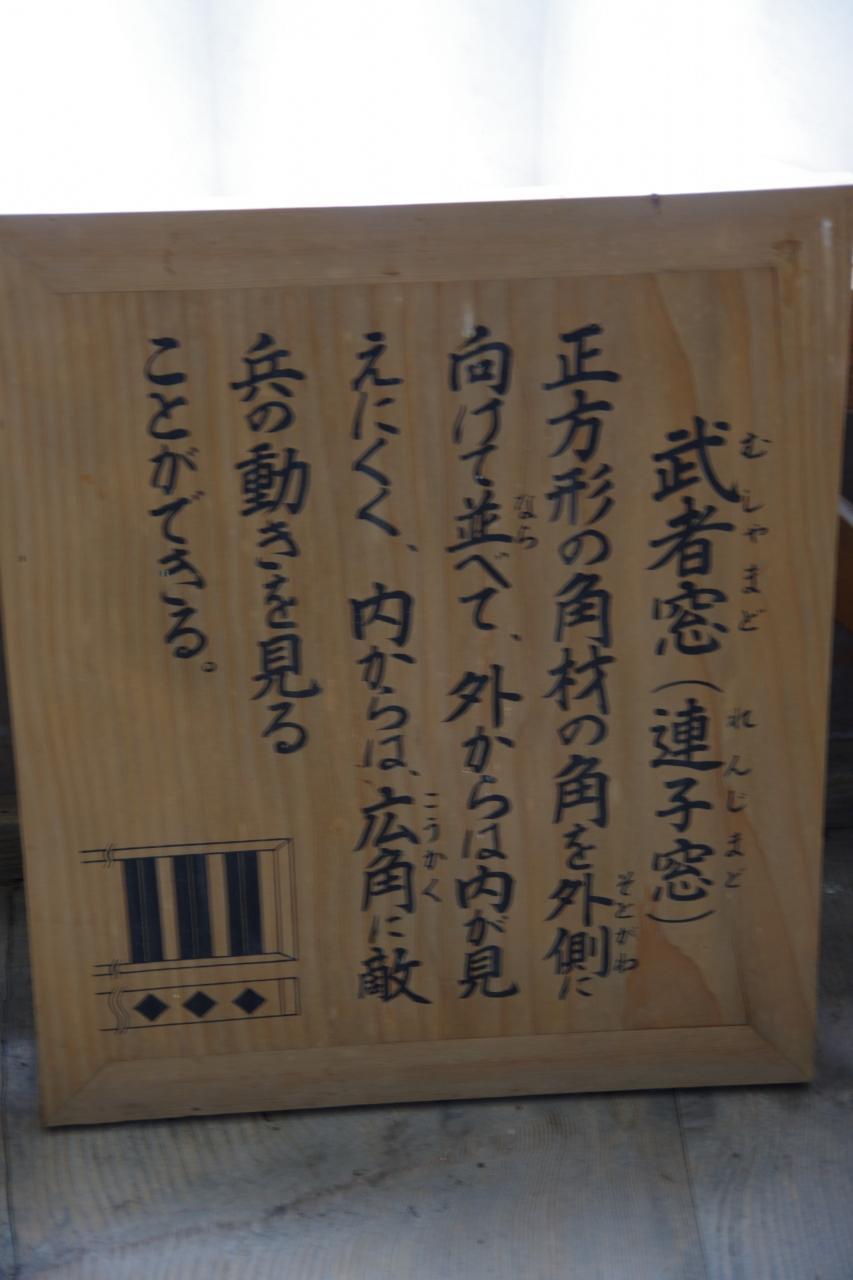 武者窓（連子窓）
むしゃまど れんじまど
正方形の角材の角を外側に
そとがわ
向けて並べて、外からは内が見
なら
えにくく、内からは、広角に敵
こうかく
兵の動きを見る
ことができる。